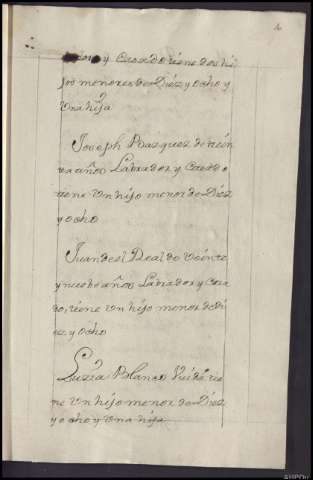 y Casado tiene dos hi
jos menores de Diez y ocho y
Vna hija
Joseph Bazquez de trein
ta años Labrador y Casado
tiene Vn hijo menor de Diez
y ocho
Juan del de Veinte
y nuebe años Labrador y Casa
do, tiene Vn hijo menor de Di
ez y ocho
Luzia Blanco Viuda tie
ne Vn hijo menor de Diez
y ocho y Vna hija